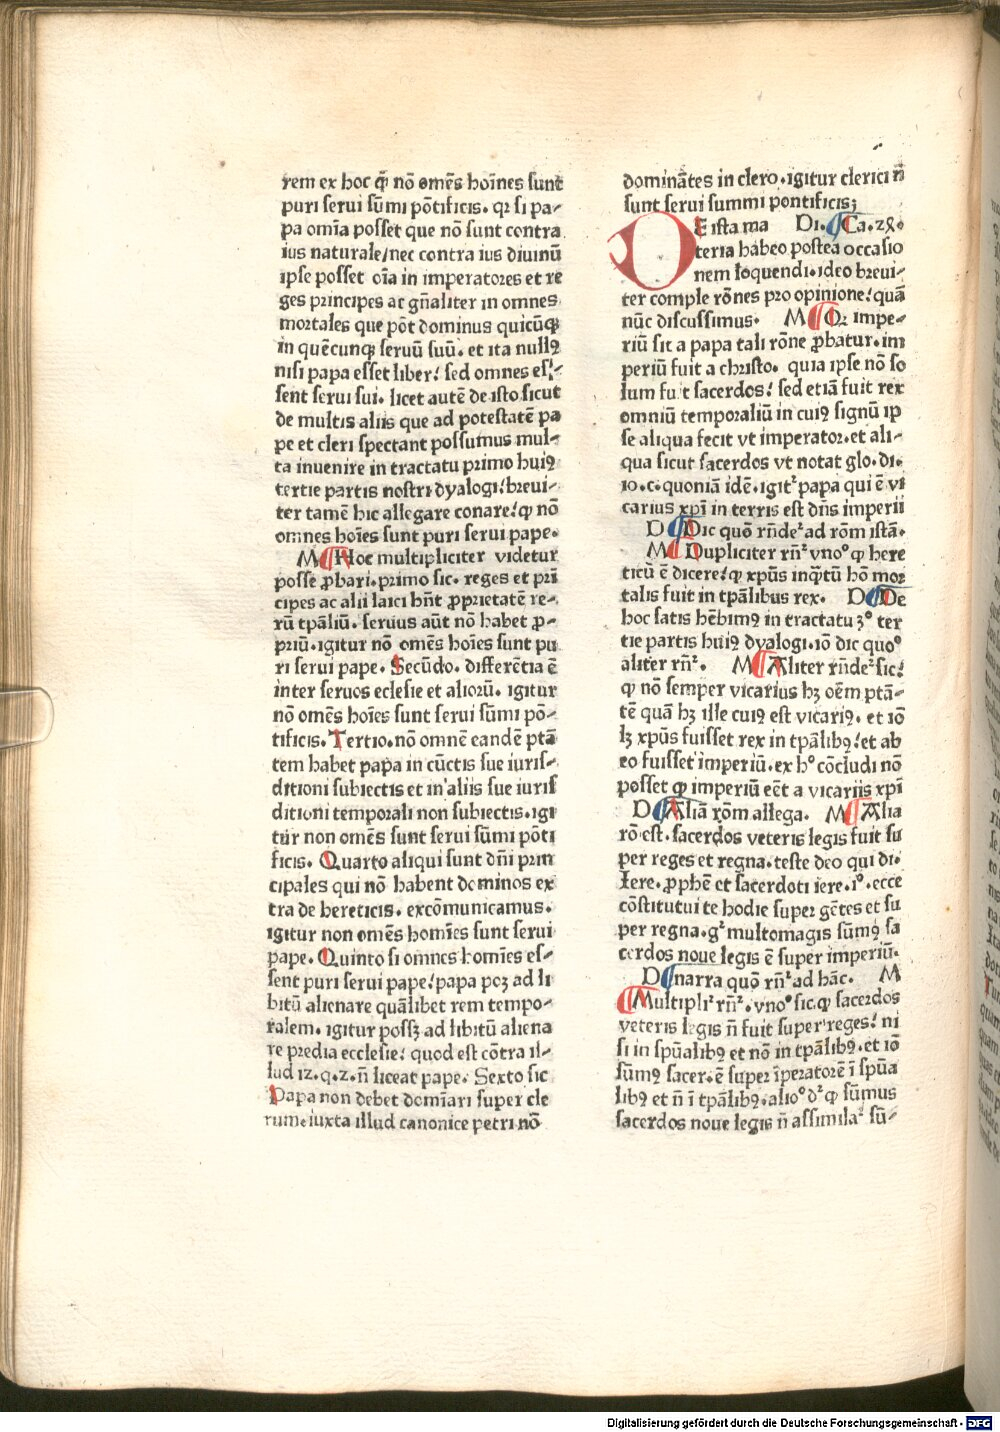 rem ex hoc q̄ nō omēs hoīnes sunt
puri serui sūmi pōtificis. qꝛ si pa⸗
pa omīa posset que nō sunt contra
ius naturale/nec contra ius diuinū
ipse posset oīa in imperatores et re
ges principes ac gn̄aliter in omnes
mortales que pōt dominus quicūqꝫ
in quēcunqꝫ seruū suū. et ita nullꝰ
nisi papa esset liber: sed omnes es⸗
sent serui sui. licet autē de isto sicut
de multis aliis que ad potestatē pa
pe et cleri spectant possumus mul⸗
ta inuenire in tractatu primo huiꝰ
tertie partis nostri dyalogi: breui⸗
ter tamē hic allegare conare: ꝙ nō
omnes hoīes sunt puri serui pape.
M ¶ Hoc multipliciter videtur
posse ꝓbari. primo sic. reges et prī
cipes ac alii laici hn̄t ꝓprietatē re⸗
rū tp̄aliū. seruus aūt nō habet ꝓ⸗
priū. igitur nō omēs hoīes sunt pu
ri serui pape. Secūdo. differētia ē
inter seruos eclesie et aliorū. igitur
nō omēs hoīes sunt serui sūmi pō⸗
tificis. Tertio. nō omnē eandē ptā
tem habet papa in cūctis sue iuris⸗
ditioni subiectis et in aliis sue iuris
ditioni temporali non subiectis. igi
tur non omēs sunt serui sūmi pōti
ficis. Quarto aliqui sunt dn̄i prin
cipales qui nō habent dominos ex
tra de hereticis. excōmunicamus.
igitur non omēs homīes sunt serui
pape. Quinto si omnes homīes es⸗
sent puri serui pape: papa poꝫ ad li
bitū alienare quālibet rem tempo⸗
ralem. igitur possꝫ ad libitū aliena
re predia ecclesie: quod est cōtra il⸗
lud 12. q. 2. n̄ liceat pape. Sexto sic
Papa non debet domīari super cle
rum. iuxta illud canonice petri nō
dominātes in clero. igitur clerici n̄
sunt serui summi pontificis;
DE ista ma Di. ¶ Ca. 28.
teria habeo postea occasio
nem loquendi. ideo breui⸗
ter comple rōnes pro opinione: quā
nūc discussimus. M ¶ Qꝛ impe⸗
riū sit a papa tali rōne ꝓbatur. im
periū fuit a christo. quia ipse nō so
lum fuit sacerdos: sed etiā fuit rex
omniū temporaliū in cuiꝰ signū ip
se aliqua fecit vt imperator. et ali⸗
qua sicut sacerdos vt notat glo. di.
10. c. quoniā idē. igitᷣ papa qui ē vi
carius xp̄i in terris est dn̄s imperii
D ¶ Dic quō rn̄deᷣ ad rōm istā.
M ¶ Dupliciter rn̄ᷣ vno° ꝙ here
ticū ē dicere: ꝙ xpūs inqͣtū hō mor
talis fuit in tp̄alibus rex. D ¶ De
hoc satis hēbimꝰ in tractatu 3° ter
tie partis huiꝰ dyalogi. iō dic quo°
aliter rn̄ᷣ. M ¶ Aliter rn̄deᷣ sic:
ꝙ nō semper vicarius hꝫ oēm ptā⸗
tē quā hꝫ ille cuiꝰ est vicariꝰ. et iō
lꝫ xpūs fuisset rex in tp̄alibꝰ: et ab
eo fuisset imperiū. ex h° cōcludi nō
posset ꝙ imperiū eēt a vicariis xp̄i
D ¶ Aliā rōm allega. M ¶ Alia
rō est. sacerdos veteris legis fuit su
per reges et regna. teste deo qui di.
Iere. ꝓphē et sacerdoti iere. 1°. ecce
cōstitutui te hodie super gētes et su
per regna. g° multomagis sūmꝰ sa
cerdos noue legis ē super imperiū.
D ¶ narra quō rn̄ᷣ ad hāc. M
¶ Multipliᷣ rn̄ᷣ. vno° sic. ꝙ sacerdos
veteris legis n̄ fuit super reges: ni
si in spūalibꝰ et nō in tp̄alibꝰ. et iō
sūmꝰ sacer. ē super īperatorē ī spūa
libꝰ et n̄ ī tp̄alibꝰ. alio° dᷣ ꝙ sūmus
sacerdos noue legis n̄ assimilaᷣ sū⸗
Digitalisierung gefördert durch die Deutsche Forschungsgemeinschaft - DFG